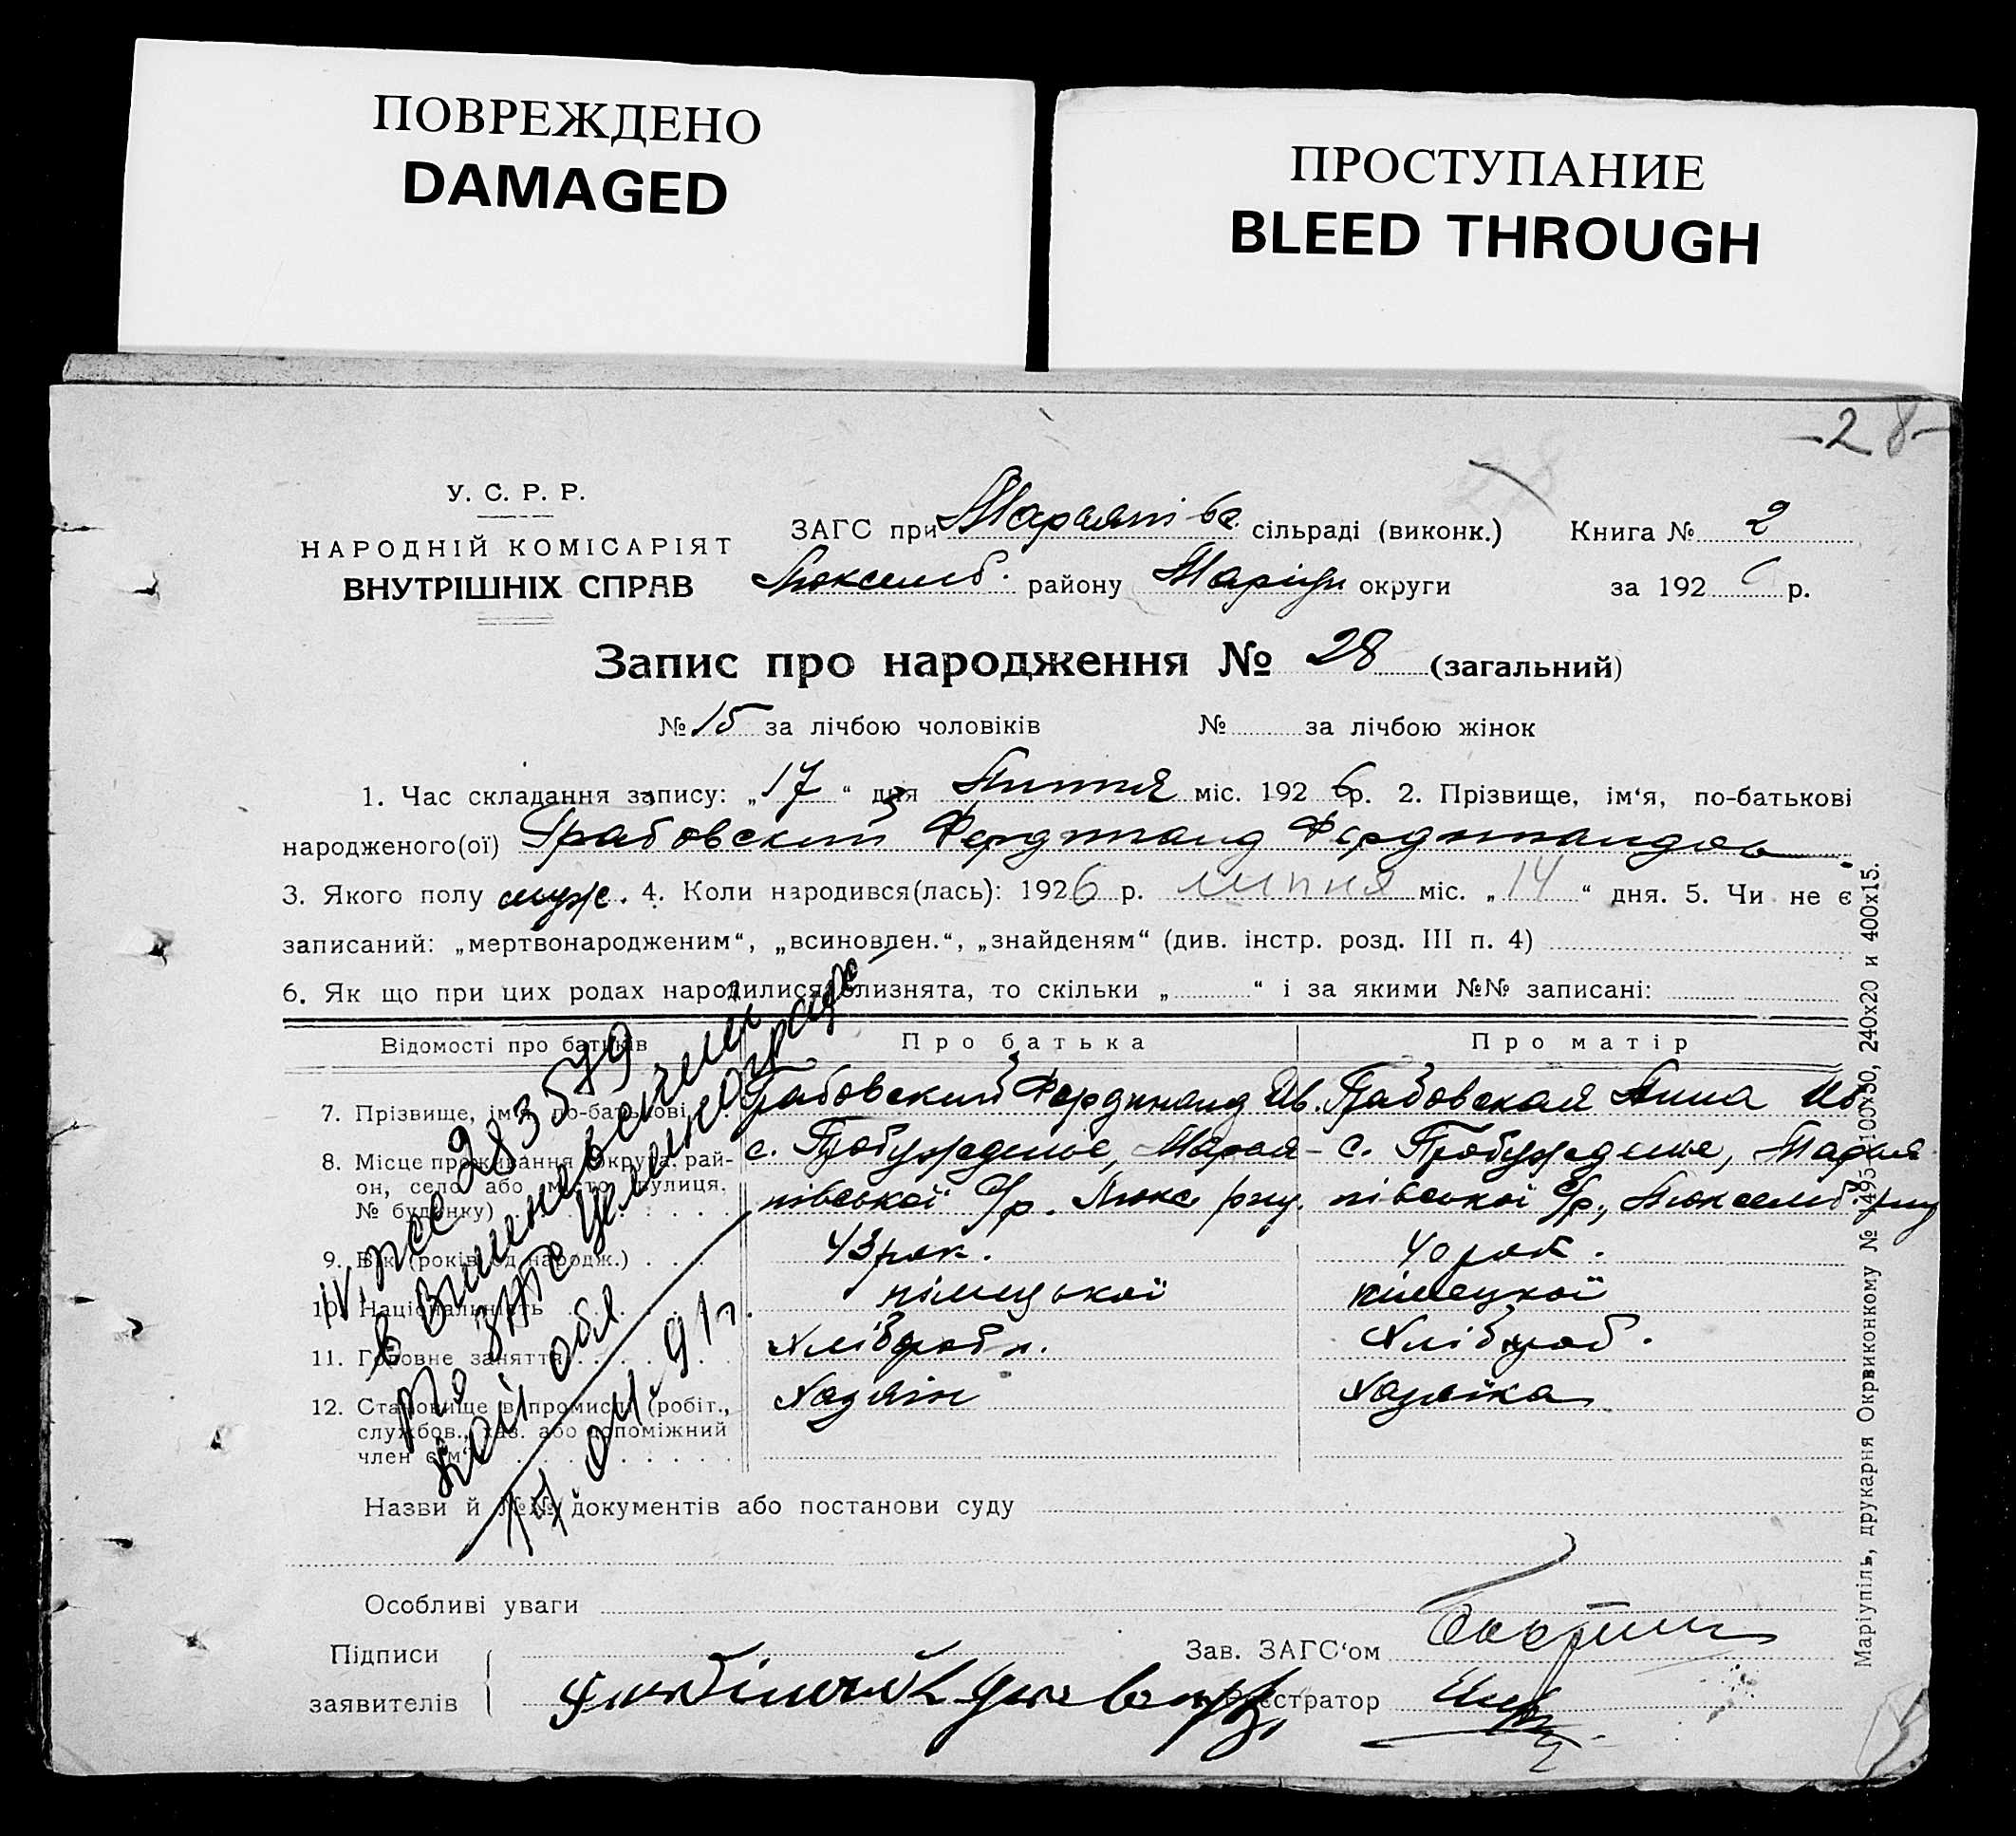 ПОВРЕЖДЕНО
DAMAGED
ПРОСТУПАНИЕ
BLEED THROUGH
-28-
28
У. С. Р. Р.
НАРОДНІЙ КОМІСАРІЯТ
ВНУТРІШНІХ СПРАВ
ЗАГС при сільраді (виконк.) Книга № 2
Люксемб. району Маріуп округи за 192 р.
Запис про народження № 28 (загальний)
№ 15 за лічбою чоловіків № за лічбою жінок
1. Час складання запису: „17“ дня Липня міс. 1926 р. 2. Прізвище, ім‘я, по-батькові
народженого(ої) Грабовский Фердинанд Фердинандов
3. Якого полу муж. 4. Коли народився(лась): 1926 р. липня міс. „14“ дня. 5. Чи не є
записаний: „мертвонародженим“, „всиновлен.“, „знайденям“ (див. інстр. розд. III п. 4)
6. Як що при цих родах народилися близнята, то скільки „ “ і за якими №№ записані:
Відомості про батьків Про батька Про матір
7. Прізвище, ім‘я, по-батькові Грабовский Фердинанд Ив. Грабовская Анна Ив.
8. Місце проживання (округа, рай- с. Пробуждение, Марья- с. Пробуждение, Марья
он, село або місто, вулиця, нівської с/р. Люкс рну. нівської с/р., Люксемб рну
№ будинку)
9. Вік (років од народж.) 43 рок. 40 рок.
10. Національність німецької німецкої
11. Головне заняття Хліброб Хліброб.
12. Становище в промислі (робіт., Хазяїн Хазяїка
службов., хаз. або допоміжний
член сім‘ї)
283579
обл
17 04 91 г.
Назви й №№ документів або постанови суду
Особливі уваги
Підписи
заявителів
Зав. ЗАГС‘ом
Реєстратор
Маріупіль, друкарня Окрвиконкому № 1495—100х50, 240х20 и 400х15.